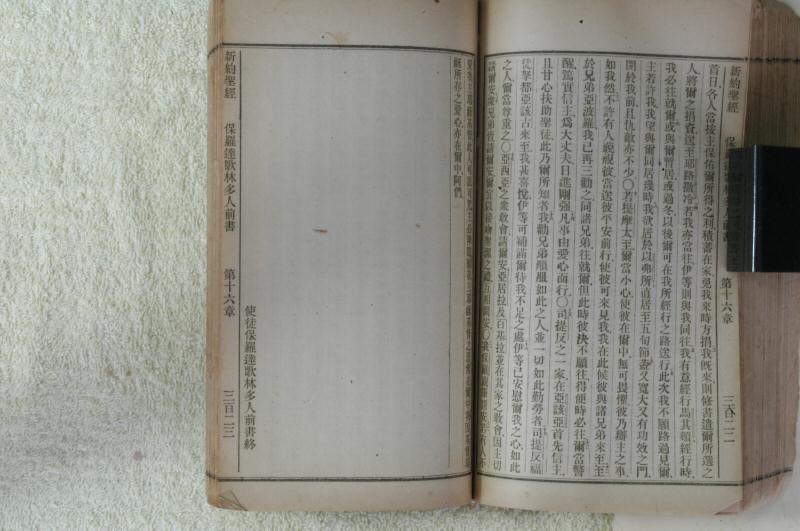 新約聖經 保羅達歌林多人前書 第十六章
首日、各人當按主保佑爾所得之利積蓄在家、免我來時方捐、我旣來、則修書遣爾所選之
人、將爾之捐資、送至耶路撒冷、若我亦當往、伊等則與我同往、我有意經行馬其頓、經行時、
我必往就爾、或與爾暫居、或過冬、以後爾可在我所經行之路送行、此次我不願路過見爾、
主若許我、我望與爾同居幾時、我欲居於以弗所、直居至五旬節、蓋又寬大又有功效之門、
開於我前、且仇敵亦不少、〇若提摩太至、爾當小心、使彼在爾中無可畏懼、彼乃辦主之事、
如我然、不許有人藐視彼、當送彼平安前行、使彼可來見我、我在此候彼與諸兄弟來、至
於兄弟亞波羅、我已再三勸之、同諸兄弟往就爾、但此時彼決不願往、得便時必往、爾當警
醒、篤實信主、爲大丈夫、日進剛强、凡事由愛心而行、〇司提反之一家、在亞該亞首先信主、
且甘心扶助聖徒、此乃爾所知者、我勸兄弟順服如此之人、並一切如此勤勞者、司提反、福
徒拏都、亞該古來、至我甚喜悅、伊等可補滿爾待我不足之處、伊等已安慰爾我之心、如此
之人、爾當尊重之、〇亞西亞之衆敎會、請爾安、亞居拉及百基拉、並在其家之敎會、因主切
請爾安、衆兄弟皆請爾安、爾當
穌所存之愛心、亦在爾中、阿們、
使徒保羅達歌林多人前書終
新約聖經 保羅達歌林多人前書 第十六章 三百二三